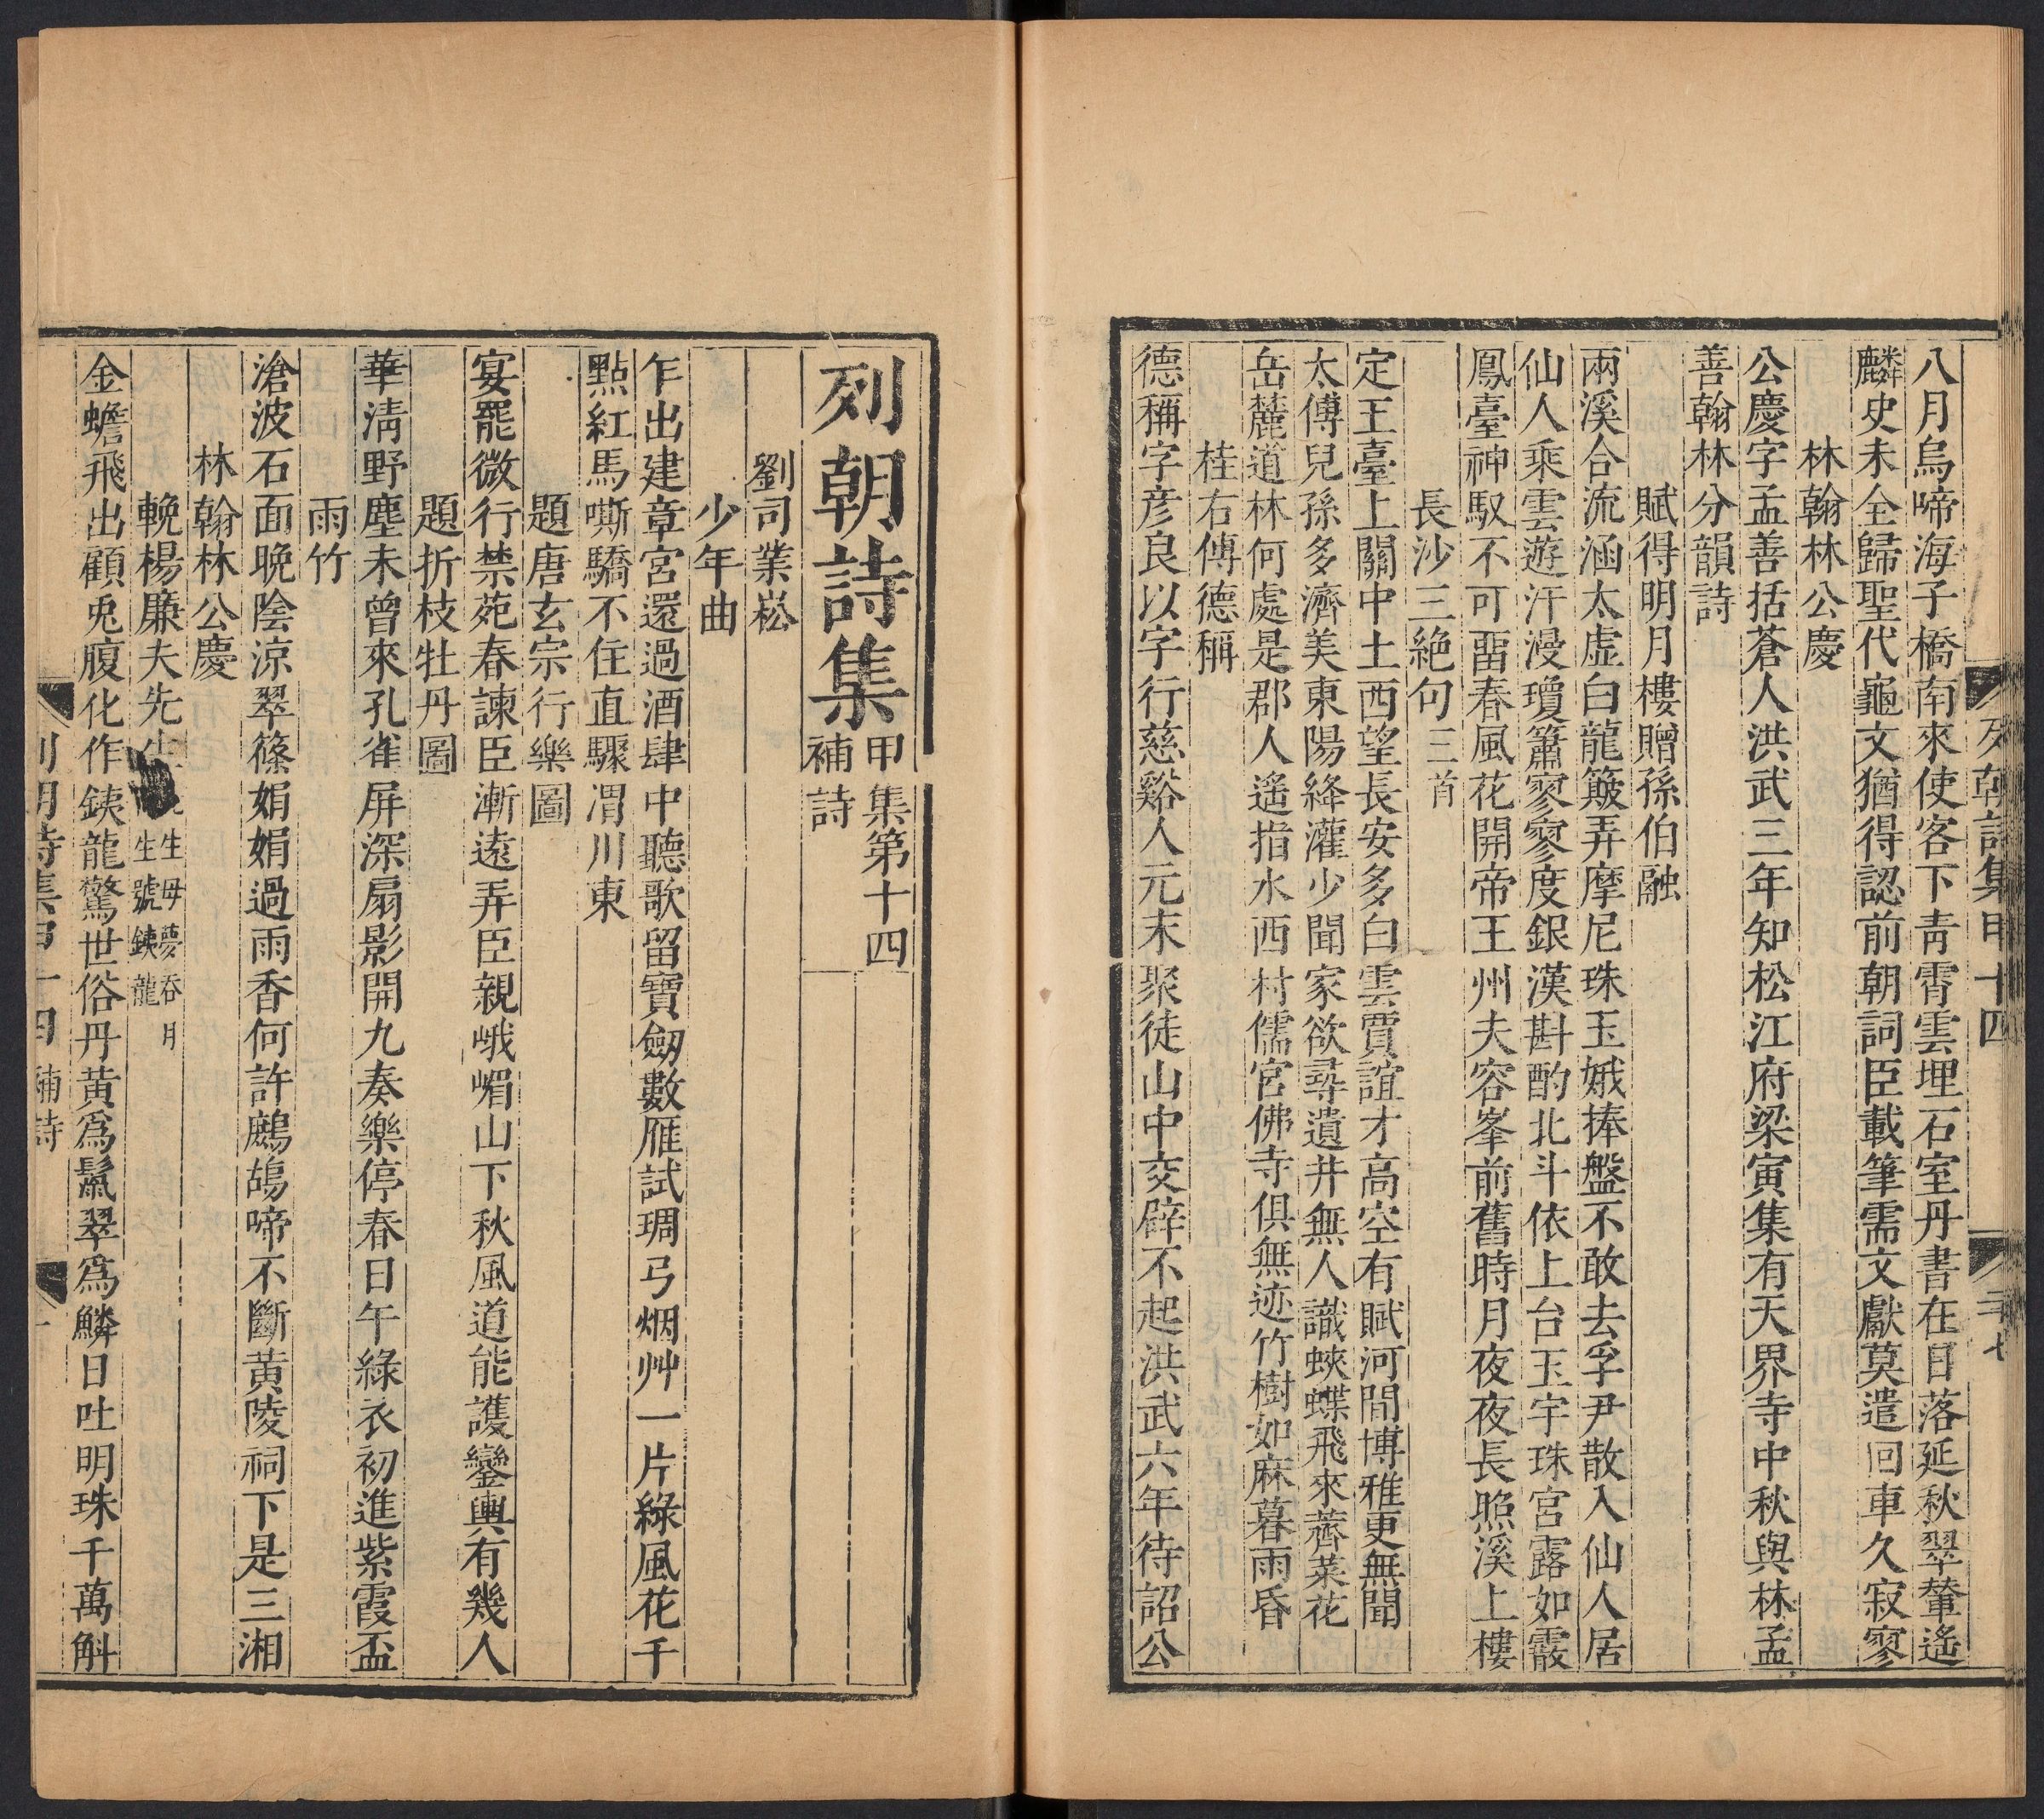 列朝詩集甲十四
二十七
八月烏啼海子橋南來使客下靑霄雲埋石室丹書在日落延秋翠輦遙
麟史未全歸聖代龜文猶得認前朝詞臣載筆需文獻莫遣回車久寂寥
林翰林公慶
公慶字孟善括蒼人洪武三年知松江府梁寅集有天界寺中秋與林孟
善翰林分韻詩
賦得明月樓贈孫伯融
兩溪合流涵太虛白龍簸弄摩尼珠玉娥捧盤不敢去孚尹散入仙人居
仙人乘雲遊汗漫瓊簫寥寥度銀漢斟酌北斗依上台玉宇珠宮露如霰
鳳臺神馭不可畱春風花開帝王州夫容峯前舊時月夜夜長照溪上樓
長沙三絶句三首
定王臺上關中土西望長安多白雲賈誼才高空有賦河間博雅更無聞
太傅兒孫多濟美東陽絳灌少聞家欲尋遺井無人識蛺蝶飛來薺菜花
岳麓道林何處是郡人遙指水西村儒宮佛寺俱無迹竹樹如麻暮雨昏
桂右傅德稱
德稱字彦良以字行慈谿人元末聚徒山中交辟不起洪武六年待詔公
列朝詩集甲集第十四
補詩
劉司業崧
少年曲
乍出建章宮還過酒肆中聽歌留寶劒數雁試琱弓烟艸一片綠風花千
點紅馬嘶驕不住直驟渭川東
題唐玄宗行樂圖
宴罷微行禁苑春諫臣漸遠弄臣親峨嵋山下秋風道能護鑾輿有幾人
題折枝牡丹圖
華淸野塵未曾來孔雀屏深扇影開九奏樂停春日午綠衣初進紫霞盃
雨竹
滄波石面晚陰涼翠篠娟娟過雨香何許鷓鴣啼不斷黃陵祠下是三湘
林翰林公慶
輓楊廉夫先生
生母夢吞月
生號鐵龍
金蟾飛出顧兎腹化作鐵龍驚世俗丹黃爲鬣翠爲鱗日吐明珠千萬斛
列朝詩集甲十四 補詩
一